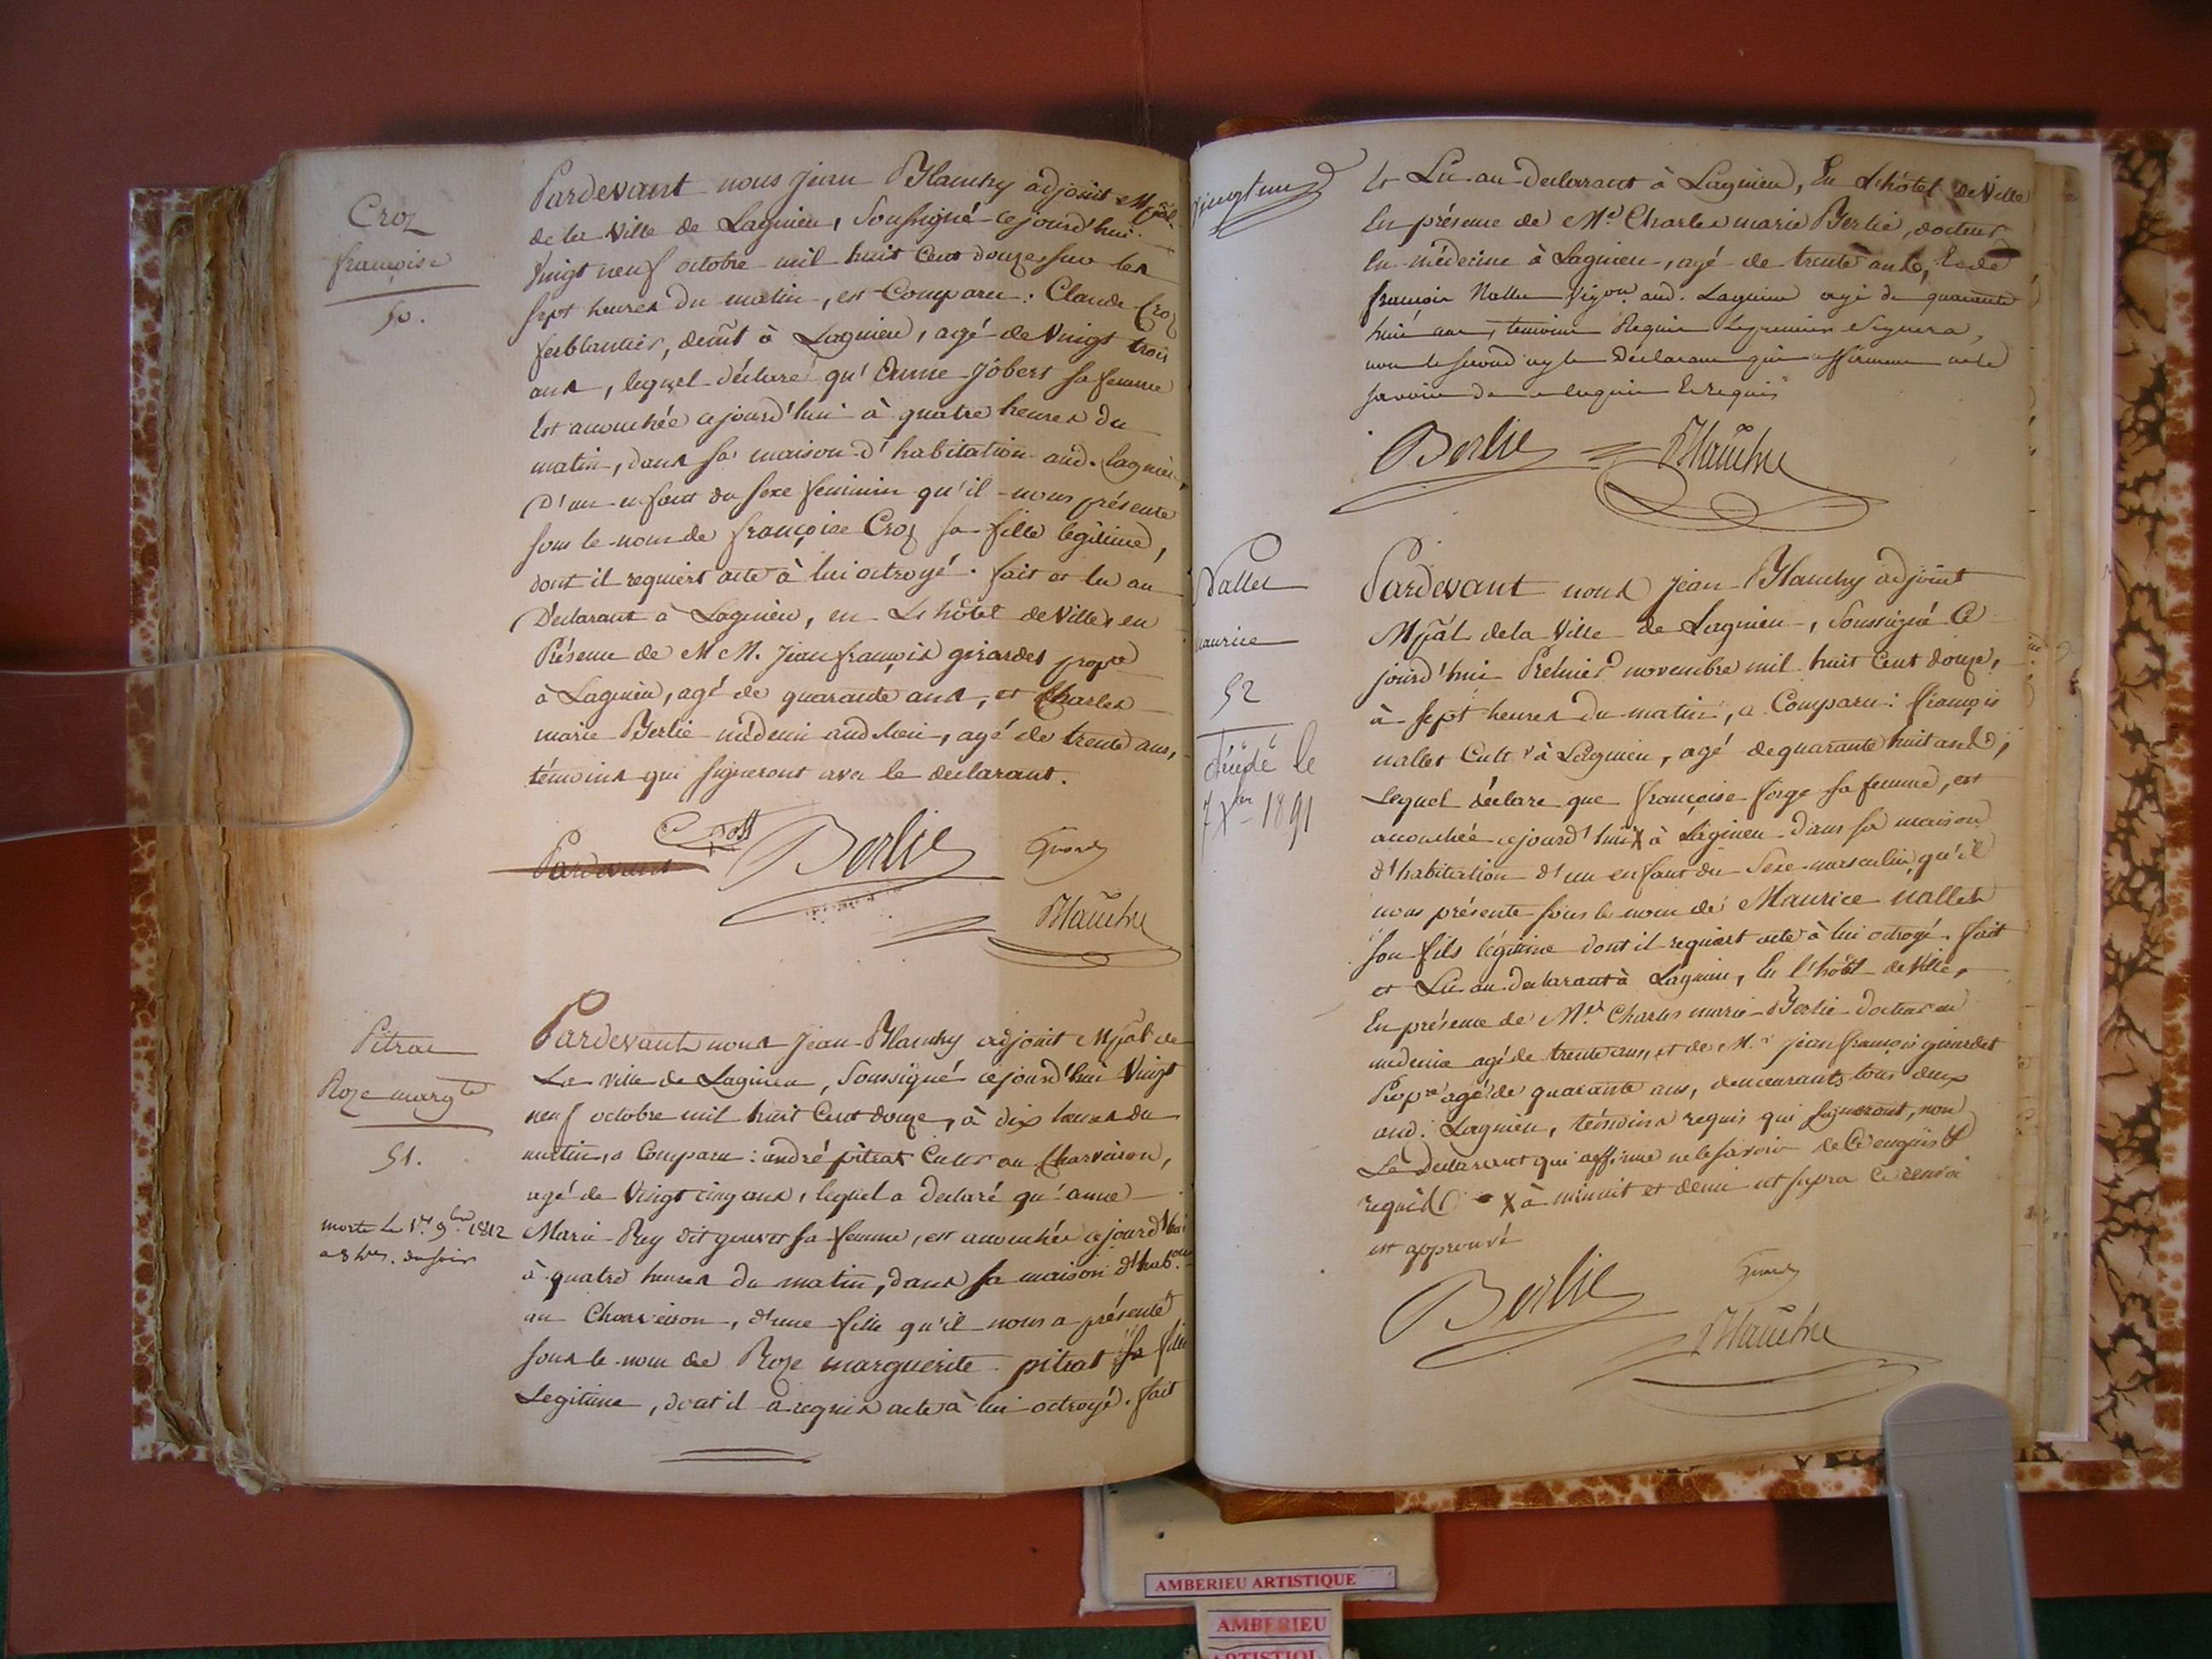 Croz
françoise
50.
Pardevant nous Jean Blanchy adjoint Mpãl
de la Ville de Lagnieu, Soussigné cejourd'hui
Vingt neuf octobre mil huit Cent douze, sur les
sept heures du matin, est Comparu : Claude Croz
ferblantier, demt à Lagnieu, agé de Vingt trois
ans, lequel déclare qu'Anne Jobert sa femme
Est accouchée cejourd'hui à quatre heures du
matin, dans sa maison d'habitation aud. Lagnieu,
D'un enfant du sexe feminin qu'il nous présente
sous le nom de françoise Croz sa fille legitime,
dont il requiert acte à lui octroyé. fait et lu au
Déclarant à Lagnieu, en L'hôtel de Ville, en
Présence de MM. Jean françois girardet propre
à Lagnieu, agé de quarante ans, et Charles
marie Berlie médecin aud lieu, agé de trente ans,
témoins qui signeront avec le declarant.
Pardevant
Berlie
Blanchy
Pitrat
Roze margte
51.
morte le 1er 9bre 1812
a 8 hres. du soir
Pardevant nous Jean Blanchy adjoint Mpãl de
La ville de Lagnieu, Soussigné cejourd'hui Vingt
neuf octobre mil huit Cent douze, à dix heures du
matin, a Comparu : andré pitrat Culter au Charveiron,
agé de Vingt cinq ans, lequel a declaré qu'anne
Marie Rey dit gouvet sa femme, est accouchée cejourd'hui
à quatre heures du matin, dans sa maison d'habon
au Charveiron, d'une fille qu'il nous a présenté
sous le nom de Roze marguerite pitrat sa fille
Legitime, dont il a requis acte à lui octroyé. fait
Vingt un
et Lu au Declarant à Lagnieu, En L'hôtel de Ville
En présence de Mr Charles marie Berlie, docteur
En médecine à Lagnieu, agé de trente ans, Et de
françois Nallet Vigon aud. Lagnieu agé de quarante
huit ans, temoins Requis Le premier Signera,
non le second ny le Déclarant qui affirment ne le
savoir de ce enquis Et requis
Berlie
Blanchy
Nallet
Maurice
52
décédé le
7 Xbre 1891
Pardevant nous Jean Blanchy adjoint
Mpãl de la Ville de Lagnieu, Soussigné Ce
jourd'hui Premier novembre mil huit Cent douze,
à sept heures du matin, a Comparu : françois
nallet Cultr à Lagnieu, agé de quarante huit ans,
Lequel déclare que françoise forge sa femme, est
accouchée cejourd'hui X à Lagnieu dans sa maison
d'habitation d'un enfant du Sexe masculin qu'il
nous présente sous le nom de Maurice nallet
son fils légitime dont il requiert acte à lui octroyé. fait
et Lu au declarant à Lagnieu, En l'hôtel de Ville,
En présence de Mrs Charles marie Berlie docteur en
medecine agé de trente ans, et de Mr jean françois girardet
Propre agé de quarante ans, demeurants tous deux
aud. Lagnieu, témoins requis qui signeront, non
Le Declarant qui affirme ne le savoir de ce enquis &
requis X à minuit et demi ut supra Ce renvoi
est approuvé
Berlie
Blanchy
AMBERIEU ARTISTIQUE
AMBERIEU